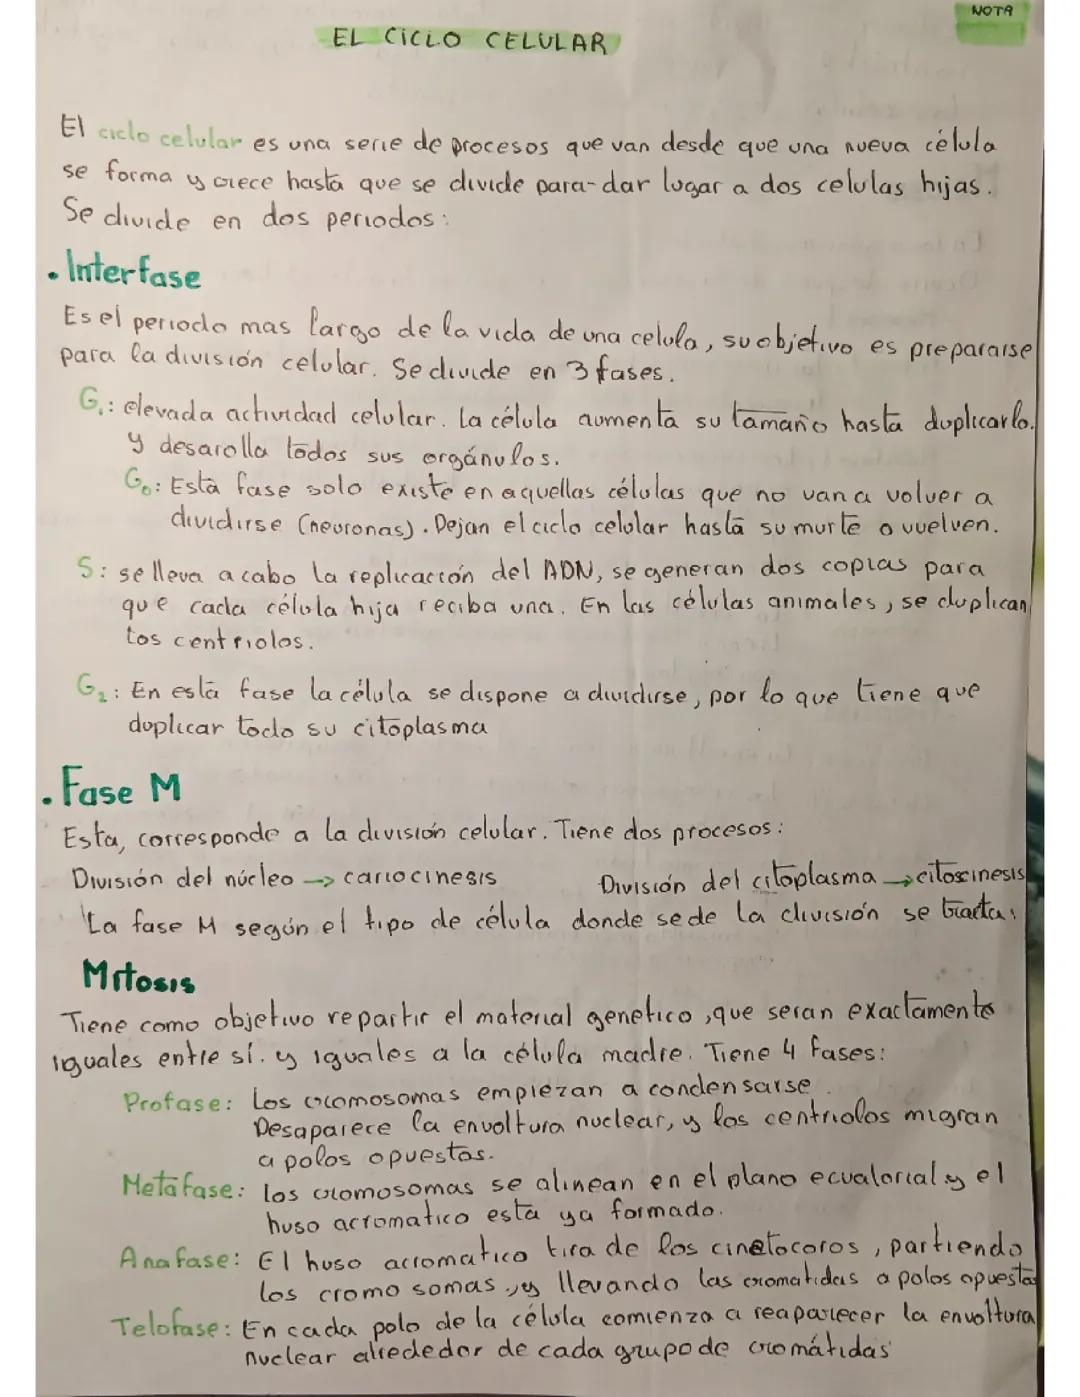 NOTA
EL CICLO CELULAR
El ciclo celular es una serie de procesos que van desde que una nueva célula
se forma y crece hasta que se divide para-dar lugar a dos celulas hijas.
Se divide en dos periodos:
. Interfase
Es el periodo mas largo de la vida de una celula, su objetivo es prepararse
para la división celular. Se divide en 3 fases.
G₁: elevada actividad celular. La célula aumenta su tamaño hasta duplicarlo.
y desarolla todos sus orgánulos.
G₀: Esta fase solo existe en aquellas células que no van a volver a
dividirse (neuronas). Dejan el ciclo celular hasta su murte o vuelven.
S: se lleva a cabo la replicación del ADN, se generan dos copias para
que cada célula hija reciba una. En las células animales, se duplican
los centriolos.
G₂: En esta fase la célula se dispone a dividirse, por lo que tiene que
duplicar todo su citoplasma
. Fase M
Esta, corresponde a la división celular. Tiene dos procesos:
División del núcleo → cariocinesis División del citoplasma → citocinesis
La fase M según el tipo de célula donde se de la división se trata:
Mitosis
Tiene como objetivo repartir el material genetico, que seran exactamente
iguales entre sí. y iguales a la célula madre. Tiene 4 fases:
Profase: Los cromosomas empiezan a condensarse.
Desaparece la envoltura nuclear, y los centriolos migran
a polos opuestos.
Metafase: los cromosomas se alinean en el plano ecuatorial y el
huso acromatico esta ya formado.
Anafase: El huso acromatico tira de los cinetocoros, partiendo
los cromosomas, y llevando las cromatidas a polos opuestos
Telofase: En cada polo de la célula comienza a reaparecer la envoltura
nuclear alrededor de cada grupo de cromátidas